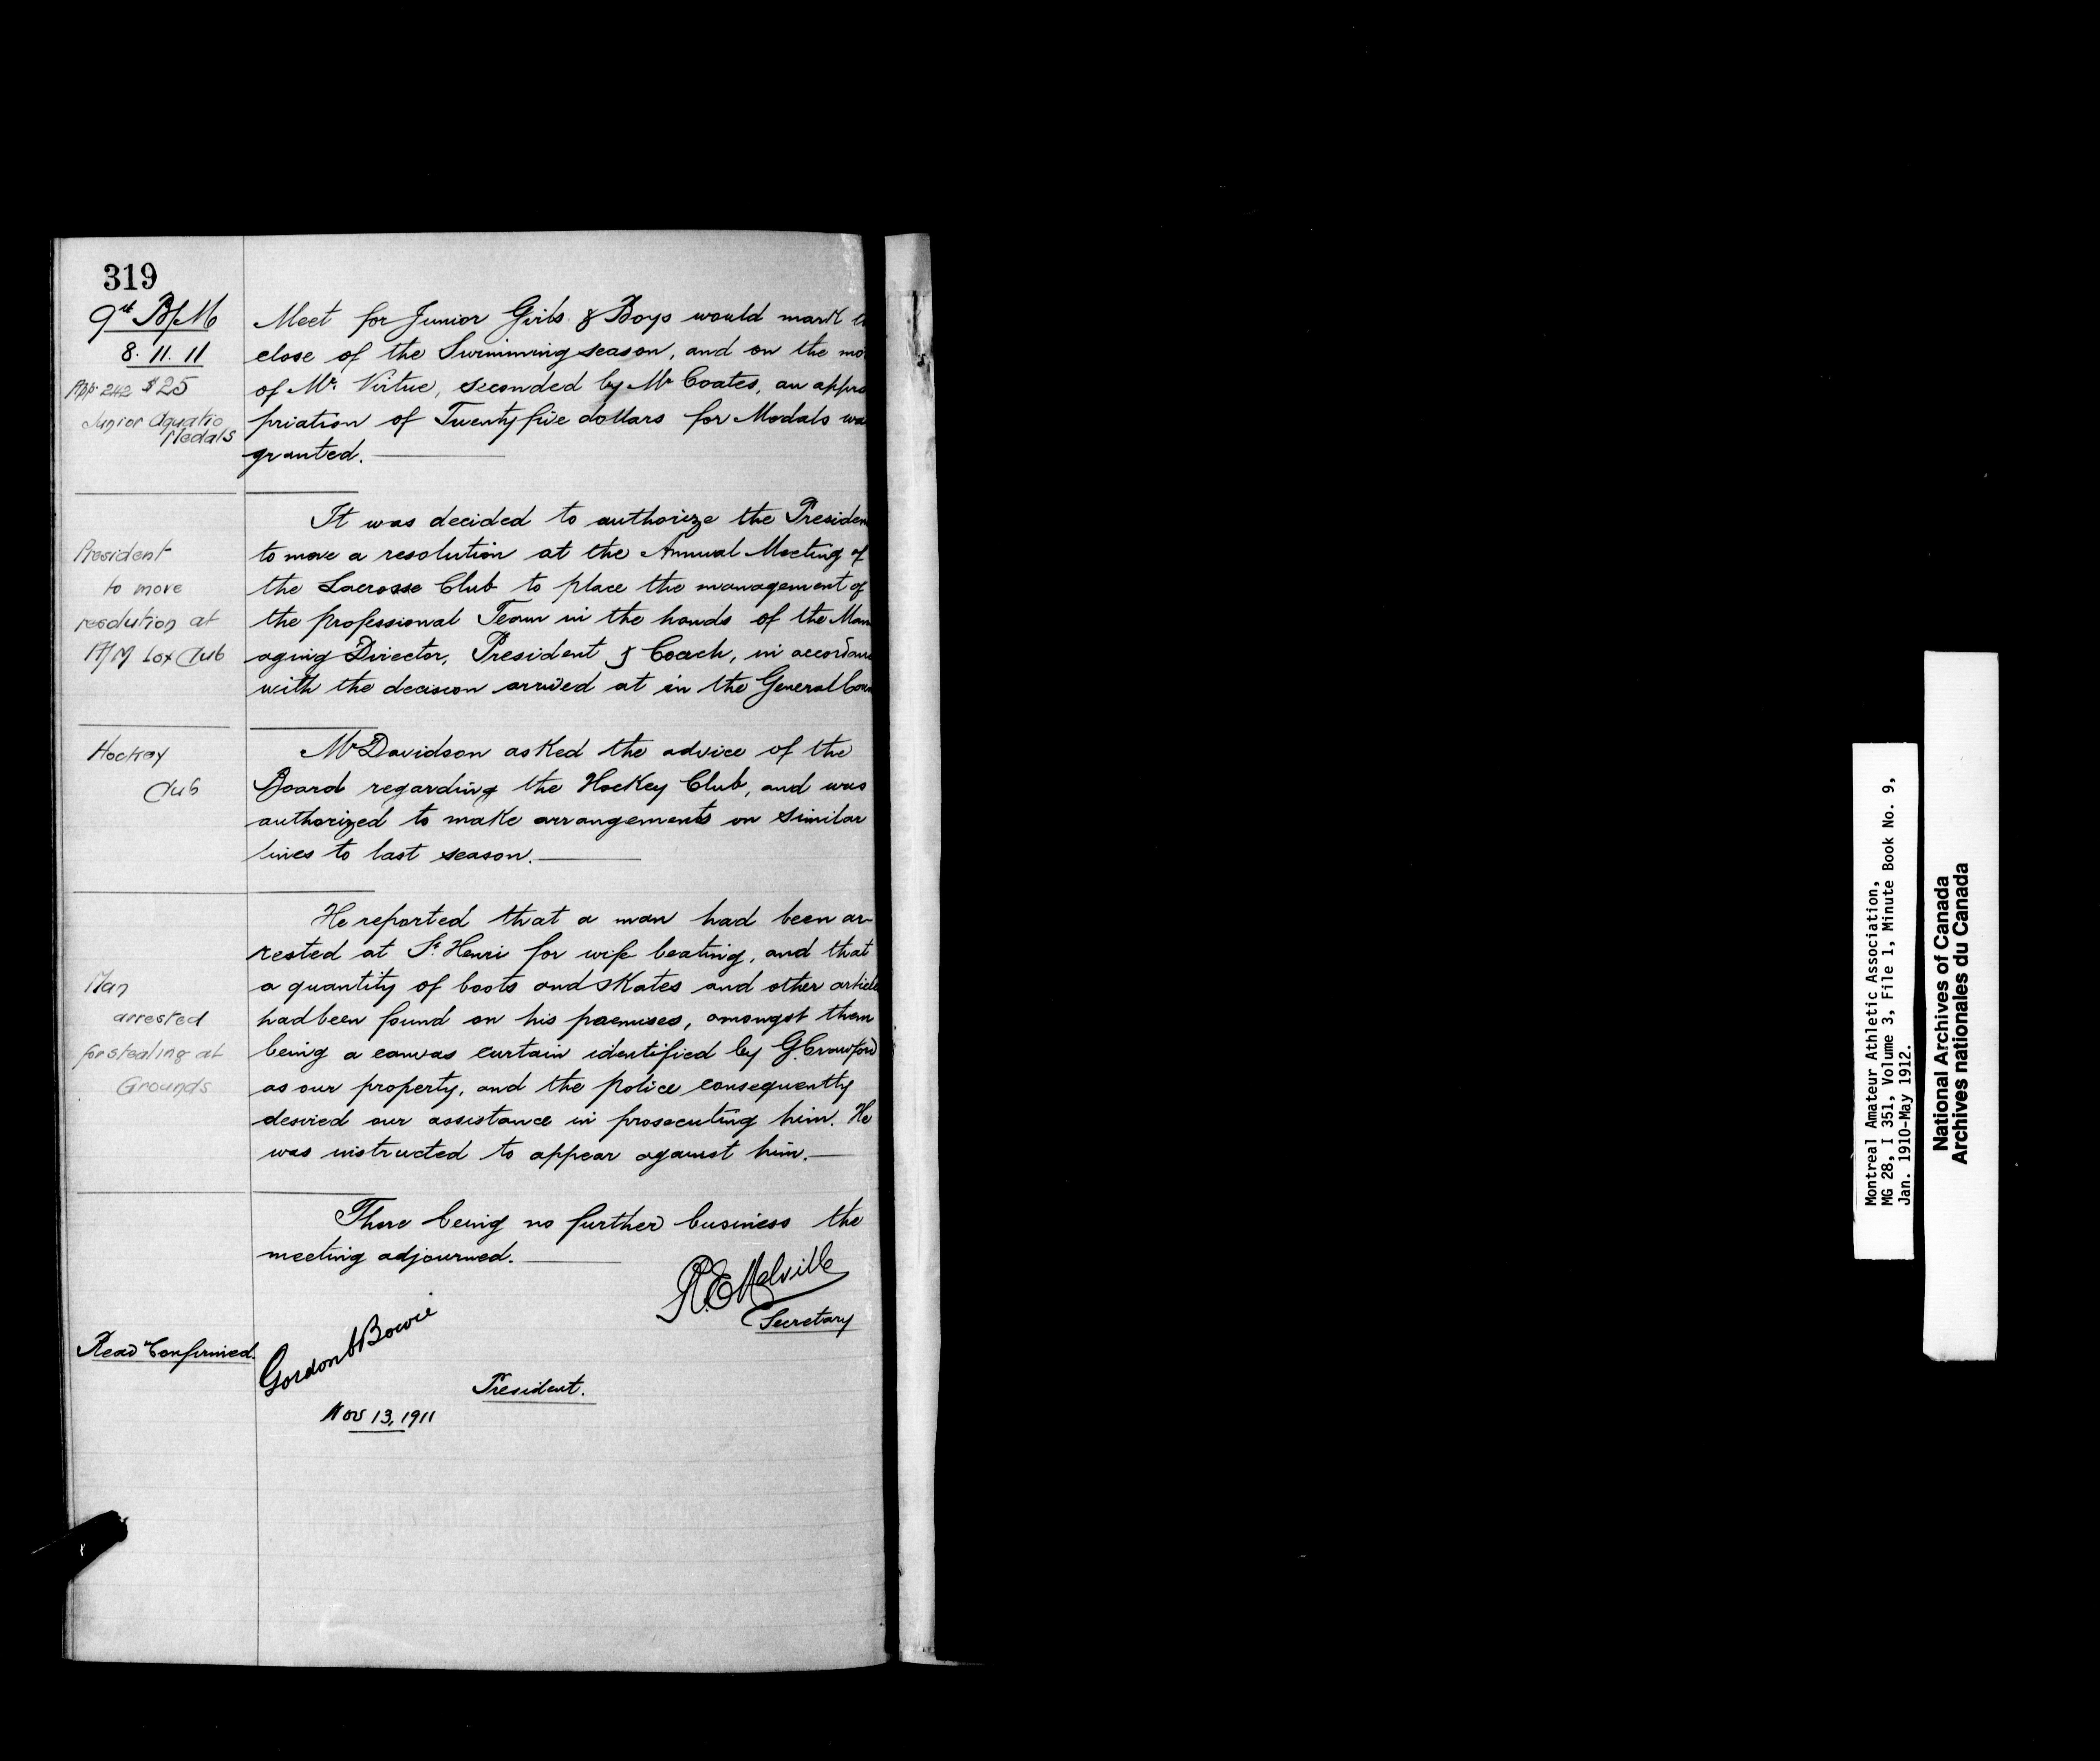 319
9th B/M
8. 11. 11
App. 242 $25
Junior Aquatic
Medals
Meet for Junior Girls & Boys would mark
close of the Swimming season, and on the mo
of Mr. Virtue, seconded by Mr Coates, an appro
priation of Twenty five dollars for Medals wa
granted.
President
to move
resolution at
A/M Lax Club
It was decided to authorize the Presiden
to move a resolution at the Annual Meeting of
the Lacrosse Club to place the management of
the professional Team in the hands of the Man
aging Director, President & Coach, in accordanc
with the decision arrived at in the General Coun
Hockey
Club
Mr Davidson asked the advice of the
Board regarding the Hockey Club, and was
authorized to make arrangements on similar
lines to last season.
Man
arrested
for stealing at
Grounds
He reported that a man had been ar-
rested at St. Henri for wife beating, and that
a quantity of boots and skates and other article
had been found on his premises, amongst them
being a canvas curtain identified by G. Crawford
as our property, and the police consequently
desired our assistance in prosecuting him. He
was instructed to appear against him.
There being no further business the
meeting adjourned.
R.E. Melville
Secretary
Read & Confirmed.
Gordon Bowie
President.
Nov 13, 1911
Montreal Amateur Athletic Association,
MG 28, I 351, Volume 3, File 1, Minute Book No. 9,
Jan. 1910-May 1912.
National Archives of Canada
Archives nationales du Canada